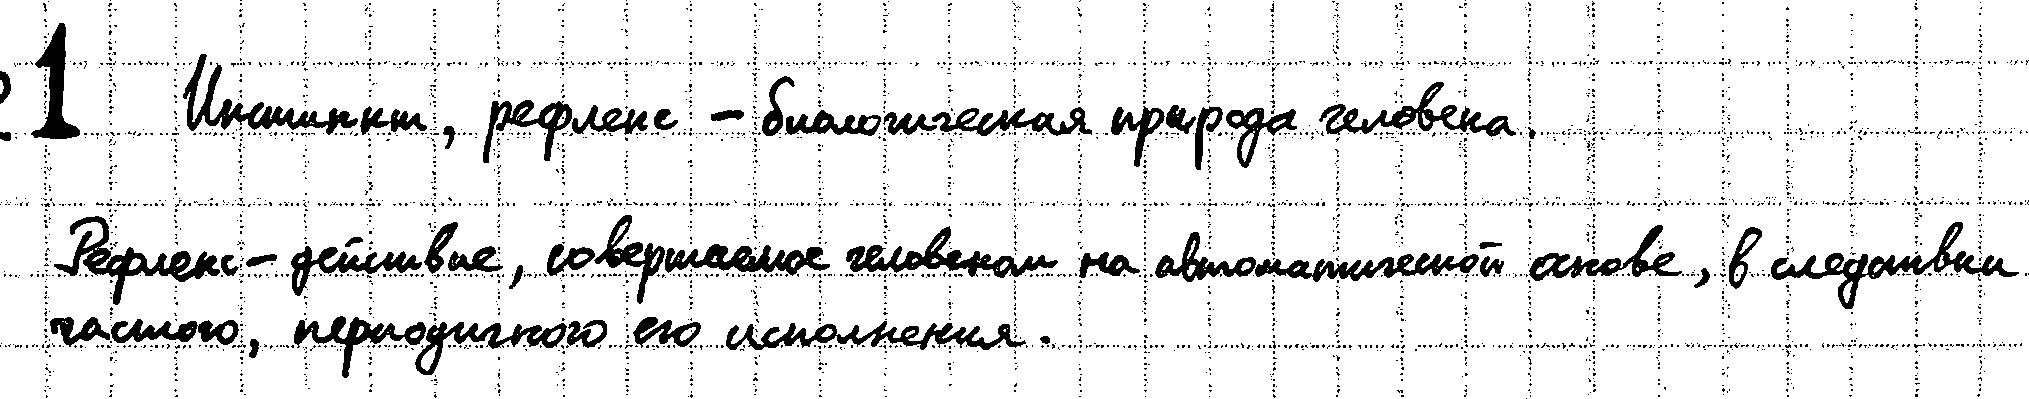 1 Инстинкт, рефлекс – биологическая природа человека.
Рефлекс – действие, совершаемое человеком на автоматической основе, в следствии
частого, периодичного его исполнения.